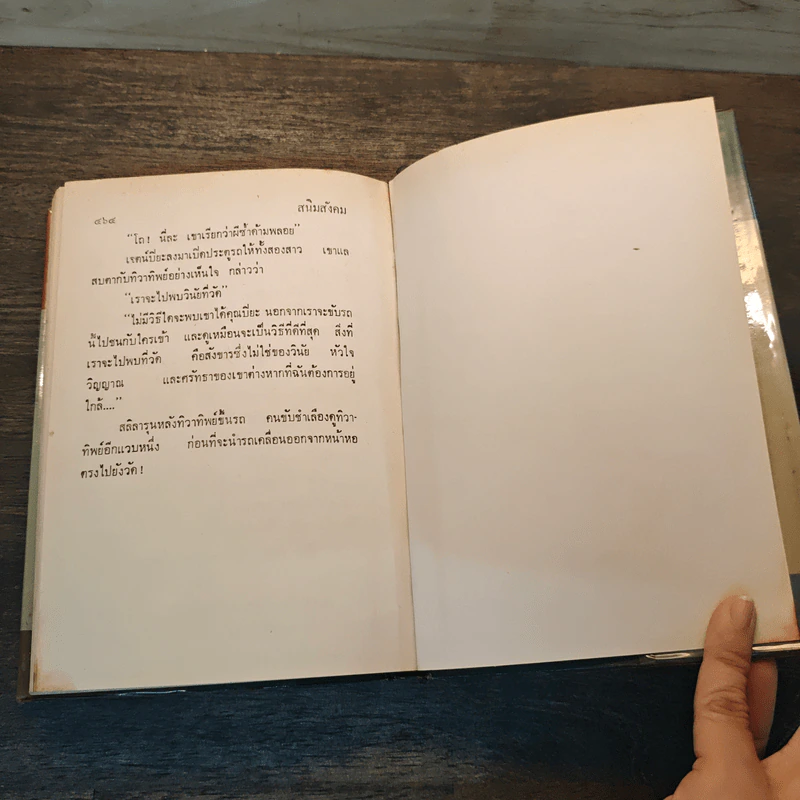 ๔๖๔ สนิมสังคม
"โถ! นี่ละ เขาเรียกว่าผีซ้ำด้ามพลอย"
เจตน์ปิยะลงมาเปิดประตูรถให้ทั้งสองสาว เขาแล
สบตากับทิวาทิพย์อย่างเห็นใจ กล่าวว่า
"เราจะไปพบวินัยที่วัด"
"ไม่มีวิธีใดจะพบเขาได้คุณปิยะ นอกจากเราจะขับรถ
นี้ไปชนกับใครเข้า และดูเหมือนจะเป็นวิธีที่ดีที่สุด สิ่งที่
เราจะไปพบที่วัด คือสังขารซึ่งไม่ใช่ของวินัย หัวใจ
วิญญาณ และศรัทธาของเขาต่างหากที่ฉันต้องการอยู่
ใกล้...."
สลิลารุนหลังทิวาทิพย์ขึ้นรถ คนขับชำเลืองดูทิวา-
ทิพย์อีกแวบหนึ่ง ก่อนที่จะนำรถเคลื่อนออกจากหน้าหอ
ตรงไปยังวัด!